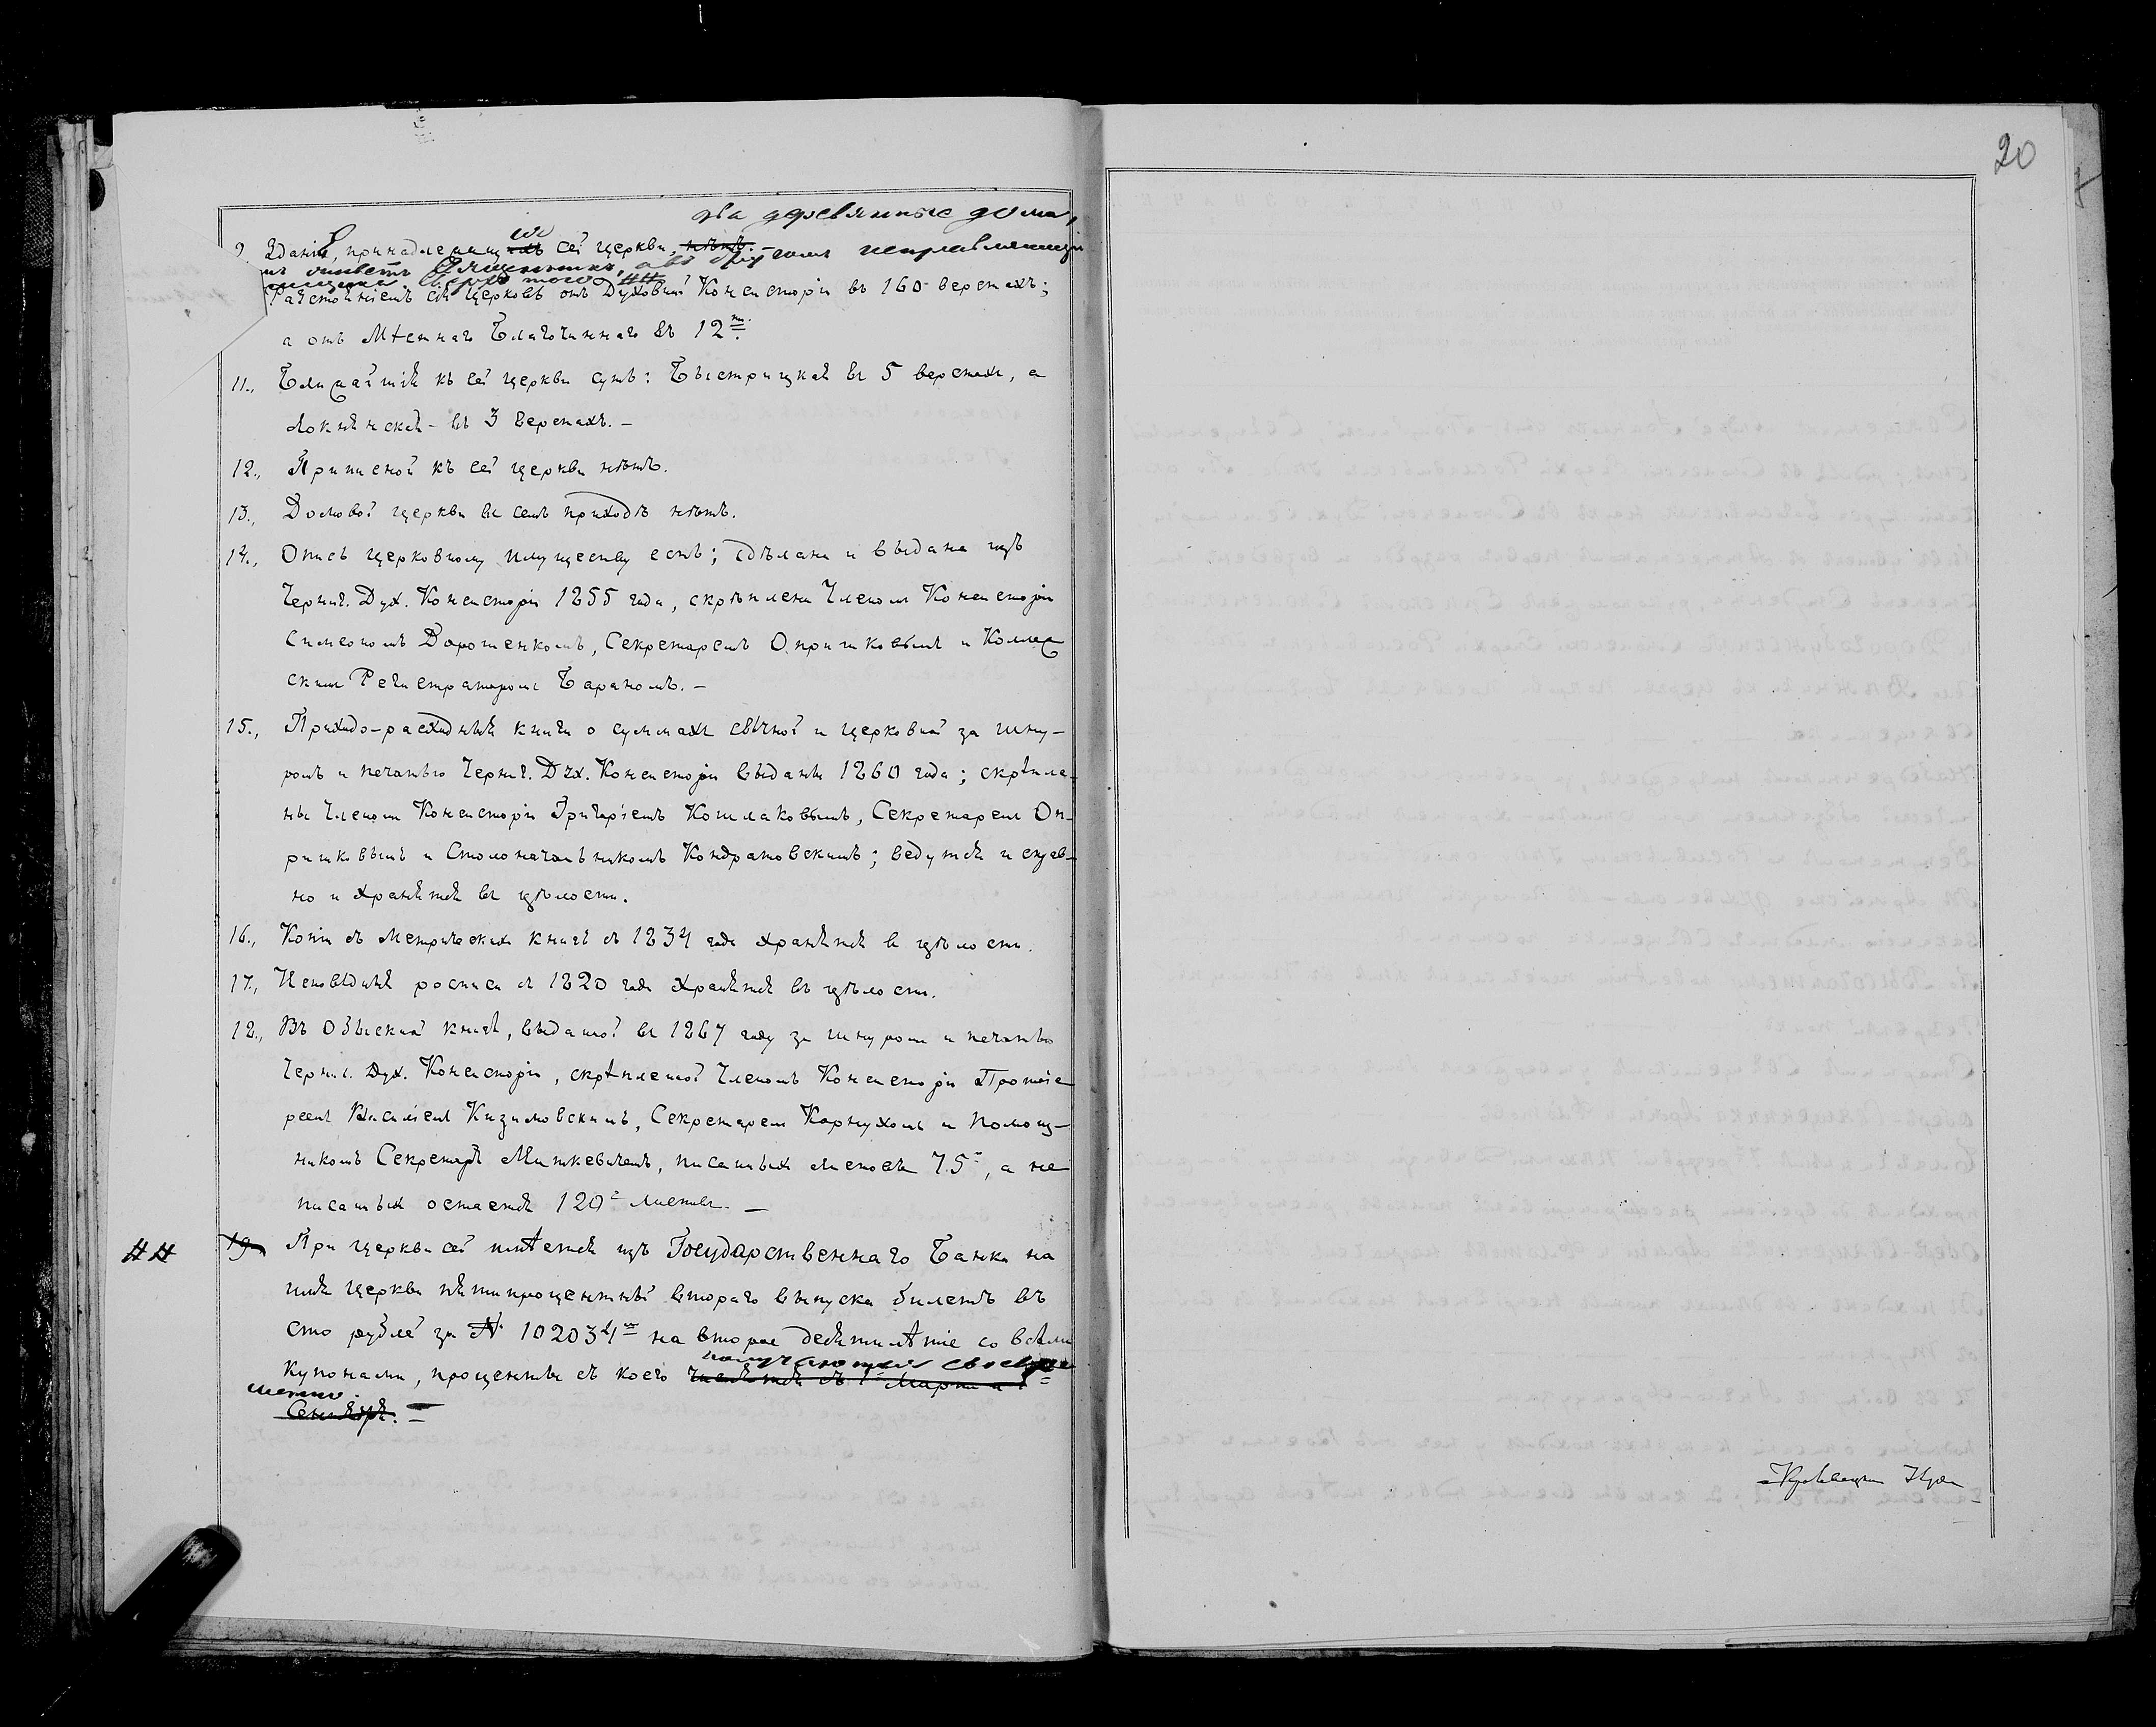 20
два деревянные дома,
9. Зданія, принадлежащія сей церкви,
Разстояніемъ сія церковь отъ Духовной Консисторіи въ 160 верстахъ;
а отъ Мѣстнаго Благочиннаго въ 12ти.
11., Ближайшія къ сей церкви суть: Быстрицкая въ 5 верстахъ, а
Локнянская - въ 3 верстахъ. -
12., Приписной къ сей церкви нѣтъ.
13., Домовой церкви въ семъ приходѣ нѣтъ.
14., Опись церковному имуществу есть; сдѣлана и выдана изъ
Черниг. Дух. Консисторіи 1855 года, скрѣплена Членомъ Консисторіи
Симеономъ Дорошенкомъ, Секретаремъ Опришковымъ и Коллеж
скимъ Регистраторомъ Бараномъ. -
15., Приходо-расходныя книги о суммахъ свѣчной и церковной за шну-
ромъ и печатью Черниг. Дух. Консисторіи выданы 1860 года; скрѣпле-
ны Членомъ Консисторіи Григоріемъ Кошлаковымъ, Секретаремъ Оп-
ришковымъ и Столоначальникомъ Кондратовскимъ; ведутся исправ-
но и хранятся въ цѣлости.
16., Копіи съ Метрическихъ книгъ съ 1834 года хранятся въ цѣлости.
17., Исповѣдныя росписи съ 1820 года хранятся въ цѣлости.
18., Въ Обыскной книгѣ, выданной въ 1867 году за шнуромъ и печатью
Черниг. Дух. Консисторіи, скрѣпленной Членомъ Консисторіи Протоіе
реемъ Василіемъ Кизимовскимъ, Секретаремъ Корнухомъ и Помощ-
никомъ Секретаря Миткевичемъ, писанныхъ листовъ 75, а не
писанныхъ остается 120 листовъ. -
## 19. При церкви сей имѣется изъ Государственнаго Банка на
имя церкви пятипроцентный втораго выпуска билетъ въ
сто рублей за № 102034 на второе десятилѣтіе со всѣми
купонами, проценты съ коего получаются своевре
менно.